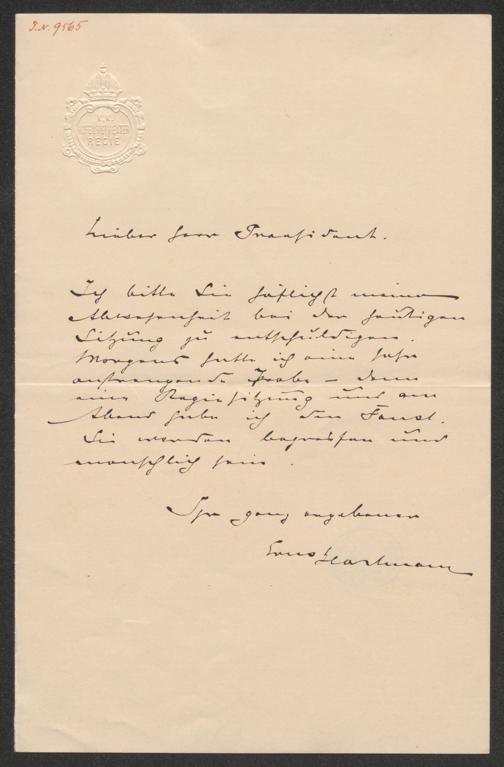 I.N. 9565
K.K.
HOFBURGTHEATER
REGIE
Lieber Herr Praesident.
Ich bitte Sie höflichst meine
Abwesenheit bei der heutigen
Sitzung zu entschuldigen.
Morgens hatte ich eine sehr
anstrengende Probe – dann
eine Regiesitzung und am
Abend habe ich den Faust.
Sie werden begreifen und
menschlich sein.
Ihr ganz ergebener
Ernst Hartmann